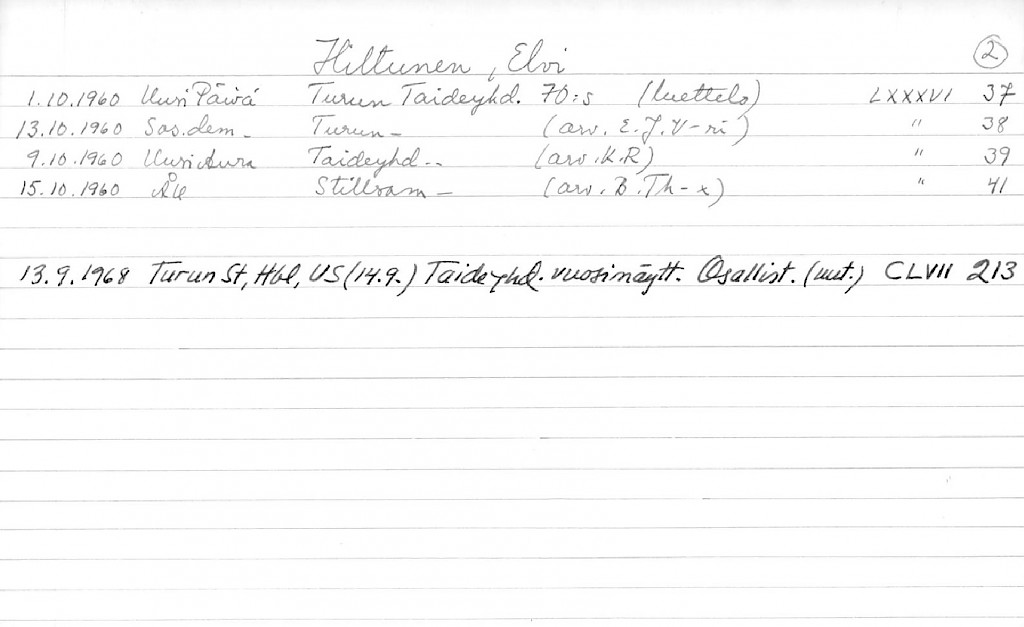 Hiltunen, Elvi 2
1.10.1960 Uusi Päivä Turun Taideyhd. 70:s (luettelo) LXXXVI 37
13.10.1960 Sos.dem. Turun - (arv. E.J.V-ri) " 38
9.10.1960 Uusi Aura Taideyhd.- (arv. K.R) " 39
15.10.1960 ÅU Stillsam - (arv. B.Th-x) " 41
13.9.1968 Turun St, Hbl, US (14.9.) Taideyhd. vuosinäytt. Osallist. (uut.) CLVII 213